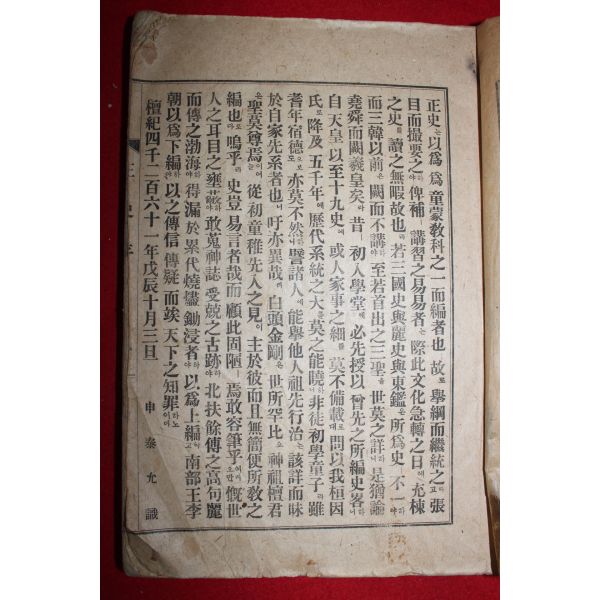 正史는以爲爲童蒙敎科之一而編者也故로擧綱而繼統之하고張
目而撮要之하야俾補講習之易易者는際此文化急轉之日에充棟
之史를讀之無暇故也라若三國史與麗史與東鑑은所爲史不一이라
而三韓以前은闕而不講하야至若首出之三聖을世莫之詳하니是猶論
堯舜而闕羲皇矣라昔에初入學堂에必先授以曾先之所編史畧하니
自天皇以至十九史에或人家事之細를莫不備載로대問以我桓因
氏로降及五千年에歷代系統之大를莫之能曉하니非徒初學童子라雖
耆年宿德으로도亦莫不然하니譬諸人에能擧他人祖先行治는該詳而昧
於自家先系者也니吁亦異哉라白頭金剛은世所罕比오神祖檀君
은聖莫尊焉이어늘從初童稚先入之見이主於彼而且無簡便所敎之
編也로다嗚乎라史豈易言者哉而顧此固陋焉敢容筆乎리오마는慨世
人之耳目之壅蔽하야敢蒐神誌受兢之古跡하야北扶餘傳之高句麗
而傳之渤海하야得漏於累代燒燼鋤浸者하야以爲上編하고南部王李
朝以爲下編하야以之傳信傳疑而竢天下之知罪하노이다
檀紀四千二百六十一年戊辰十月三旦
申泰允識
正史序